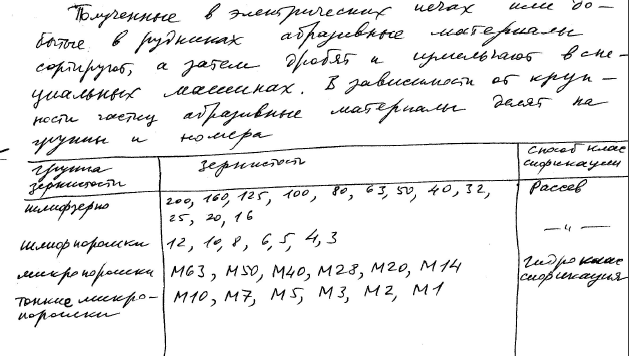 Полученные в электрических печах или до-
бытые в рудниках абразивные материалы
сортируют, а затем дробят и измельчают в спе-
циальных машинах. В зависимости от круп-
ности частиц абразивные материалы делят на
группы и номера
группа зернистости | Зернистость | Способ клас сификации
шлифзерно | 200, 160, 125, 100, 80, 63, 50, 40, 32, | Рассев
25, 20, 16
шлифпорошки | 12, 10, 8, 6, 5, 4, 3 | —"—
микропорошки | М63, М50, М40, М28, М20, М14 | Гидроклас сификация
тонкие микро- | М10, М7, М5, М3, М2, М1
порошки